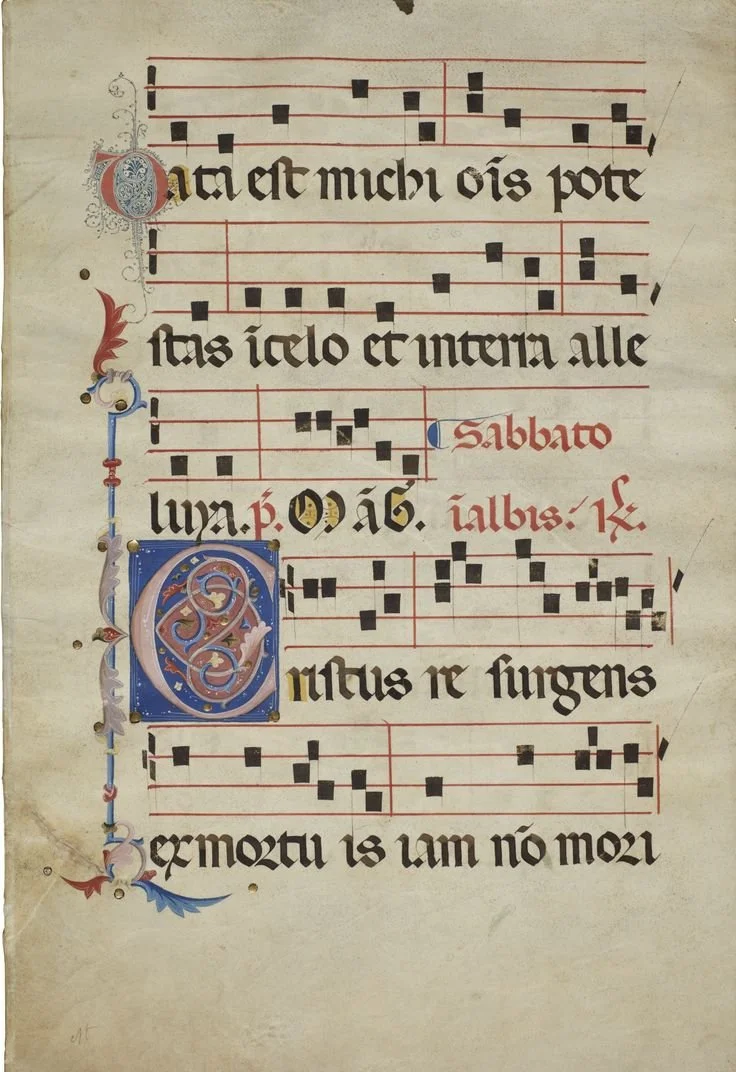 Data est michi oı̄s pote
stas ı̄celo et interra alle
luya. p̄. Sabbato
ı̄albis:
Cristus re surgens
exmortu is iam nō mori